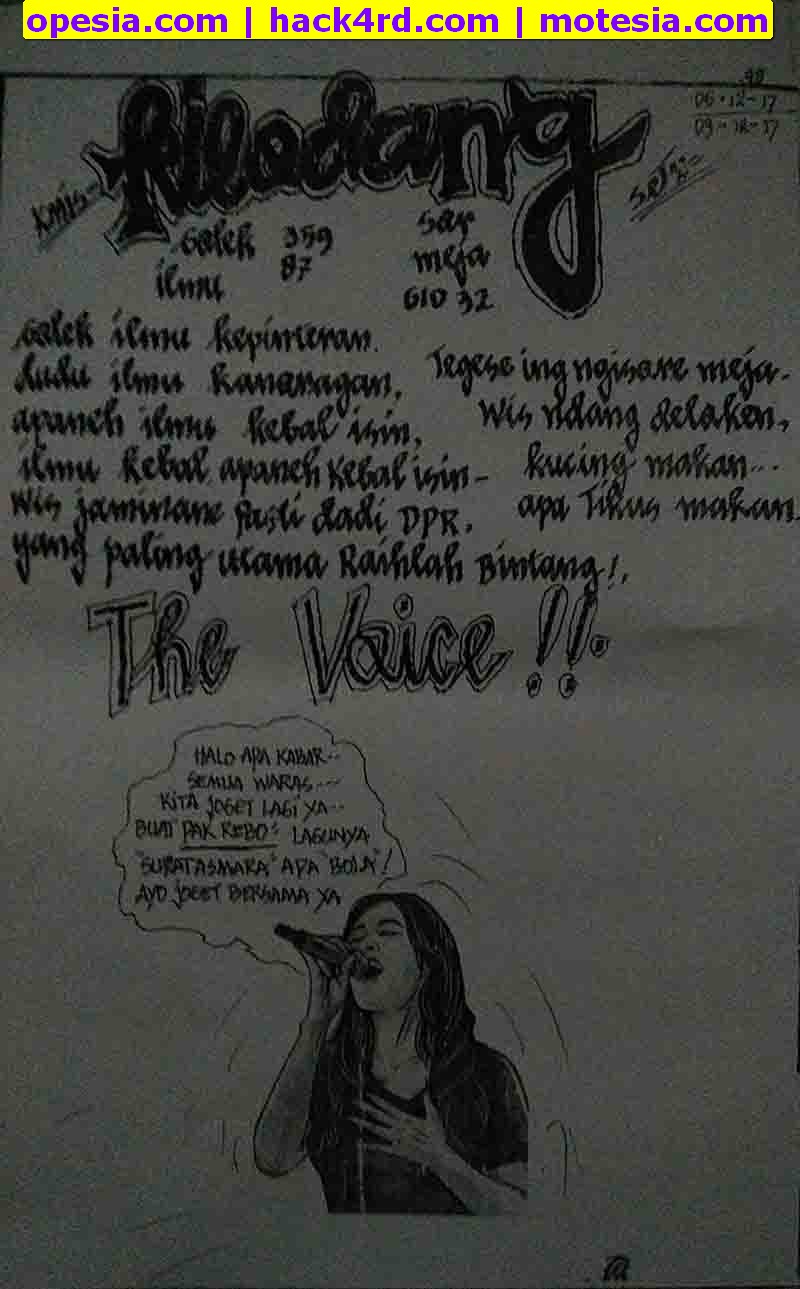 opesia.com | hack4rd.com | motesia.com
kilodang
06-12-17
09-12-17
Kmis-
Golek 359
87
ilmu
Sar
meja
610 32
Golek ilmu kepinteran.
dudu ilmu kanaragan,
apaneh ilmu kebal isin,
ilmu kebal apaneh kebal isin-
Wis jaminane pasti dadi DPR,
yang paling utama Raihlah Bintang!,
Tegese ing ngisore meja-
Wis ndang deloken,
kucing makan...
apa Tikus makan.
The Voice!!.
HALO APA KABAR--
SEMUA WARAS---
KITA JOGET LAGI YA--
BUAT "PAK REBO" LAGUNYA
"SURAT ASMARA" APA "BOLA"!
AYO JOGET BERSAMA YA